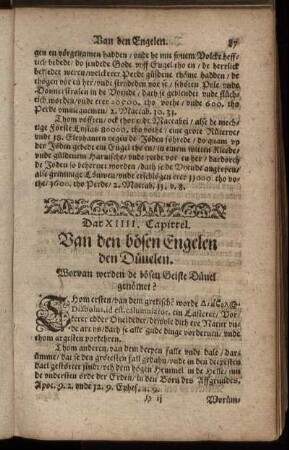 Van den Engelen. 87
gen en vörgenamen hadden / vnde he mit synem Volcke heff-
tich bedede / do sendede Godt vyff Engel tho en / de herrlick
Perde güldene thöme hadden / de
thögen vör en her / vnde
Donnerstralen in de Vyende / dath se geblendet vnde flüch-
tich worden / vnde erer 20500. tho vothe / vnde 600. tho
Perde vmme quemen / 2. Maccab. 10. 31.
Thom vöfften / ock thor tidt Maccabei / alse de mech-
tige Förste Lysias 80000. tho vothe / eine grote Rüterye /
vnde 18. Elephanten yegen de Jöden föhrede / do quam
der Jöden gebedt ein Engel tho en in einem witten Kleede /
vnde güldenem Harnische / vnde reedt vor en her / dardorch
de Jöden so behertet worden / dath se de Vyende angrepen /
alse grimmige Löuwen / vnde erschlögen erer 11000 tho vo-
the / 1600. tho Perde / 2. Maccab. 11. v. 8.
Dat XIIII. Capittel.
Van den bösen Engelen
den Düuelen.
Worvan werden de bösen Geiste Düuel
genömet?
THom ersten / van dem gretischē worde
Diabolus, id est, calumniator, ein Lasterer / Vor-
vnde
de art en / dath se alle gude dinge vorderuen / vnde
thom argesten vorkehren.
Thom anderen / van dem deepen falle vnde dale / dar-
ümme / dat se den grötesten fall gedahn / vnde in den deepen
dael gestörtet sind / vth dem högen Hemmel in de Helle / am
de vndersten örde der Erden / in den Born des Affgrundes /
Apoc. 9. 2. vnde 12. 9. Ephes. 4. 9.
H ij Worüm-